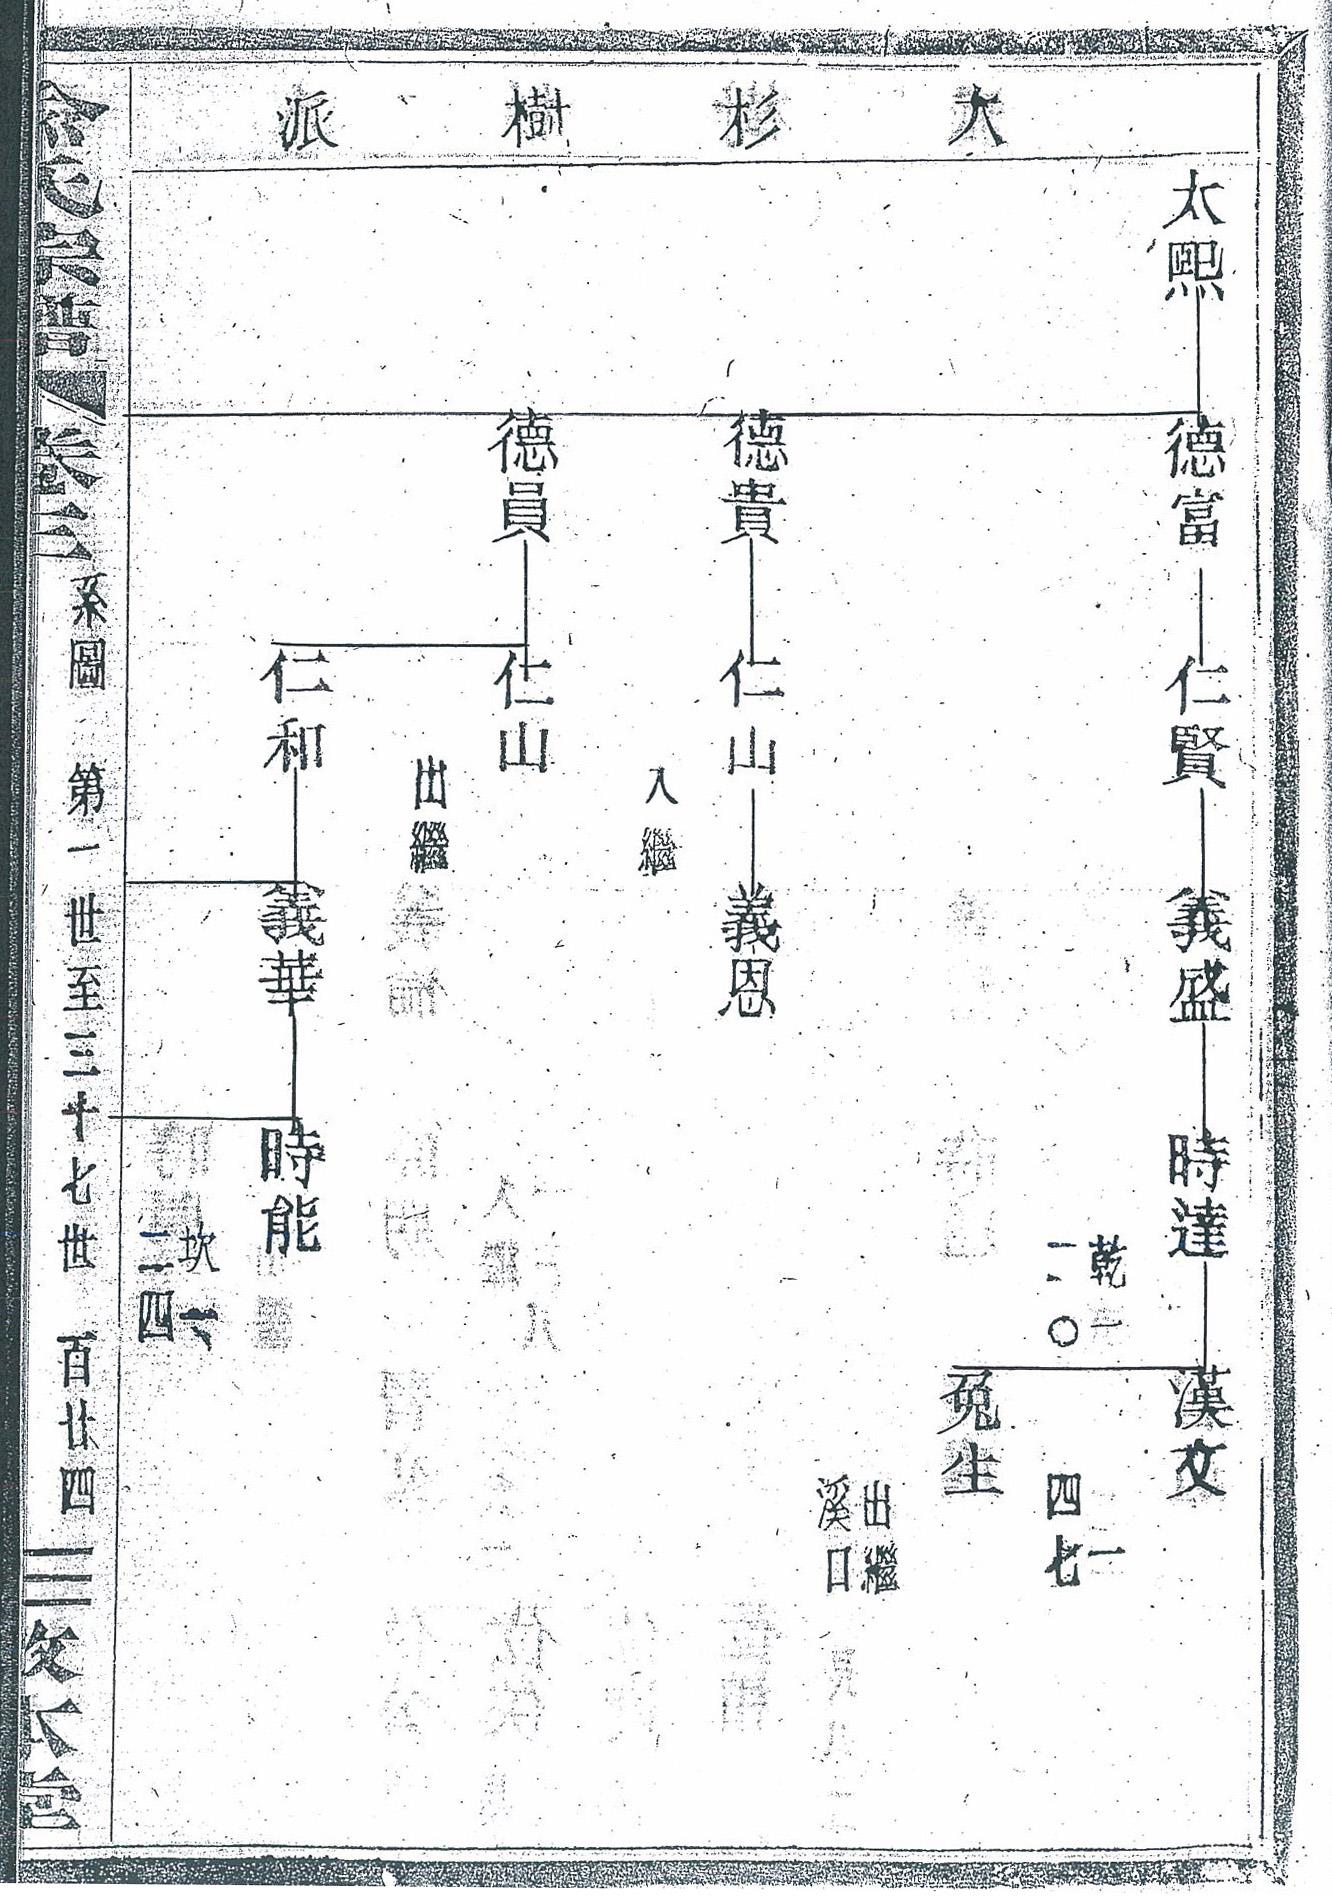 大杉樹派
太熙
德富
仁賢
義盛
時達
乾一
二一〇
漢文
一
四七
兔生
出繼
溪口
德貴
仁山
入繼
義恩
德員
仁山
出繼
仁和
義華
時能
坎一
二四
余氏宗譜
卷三
系圖
第一世至三十七世
百廿四